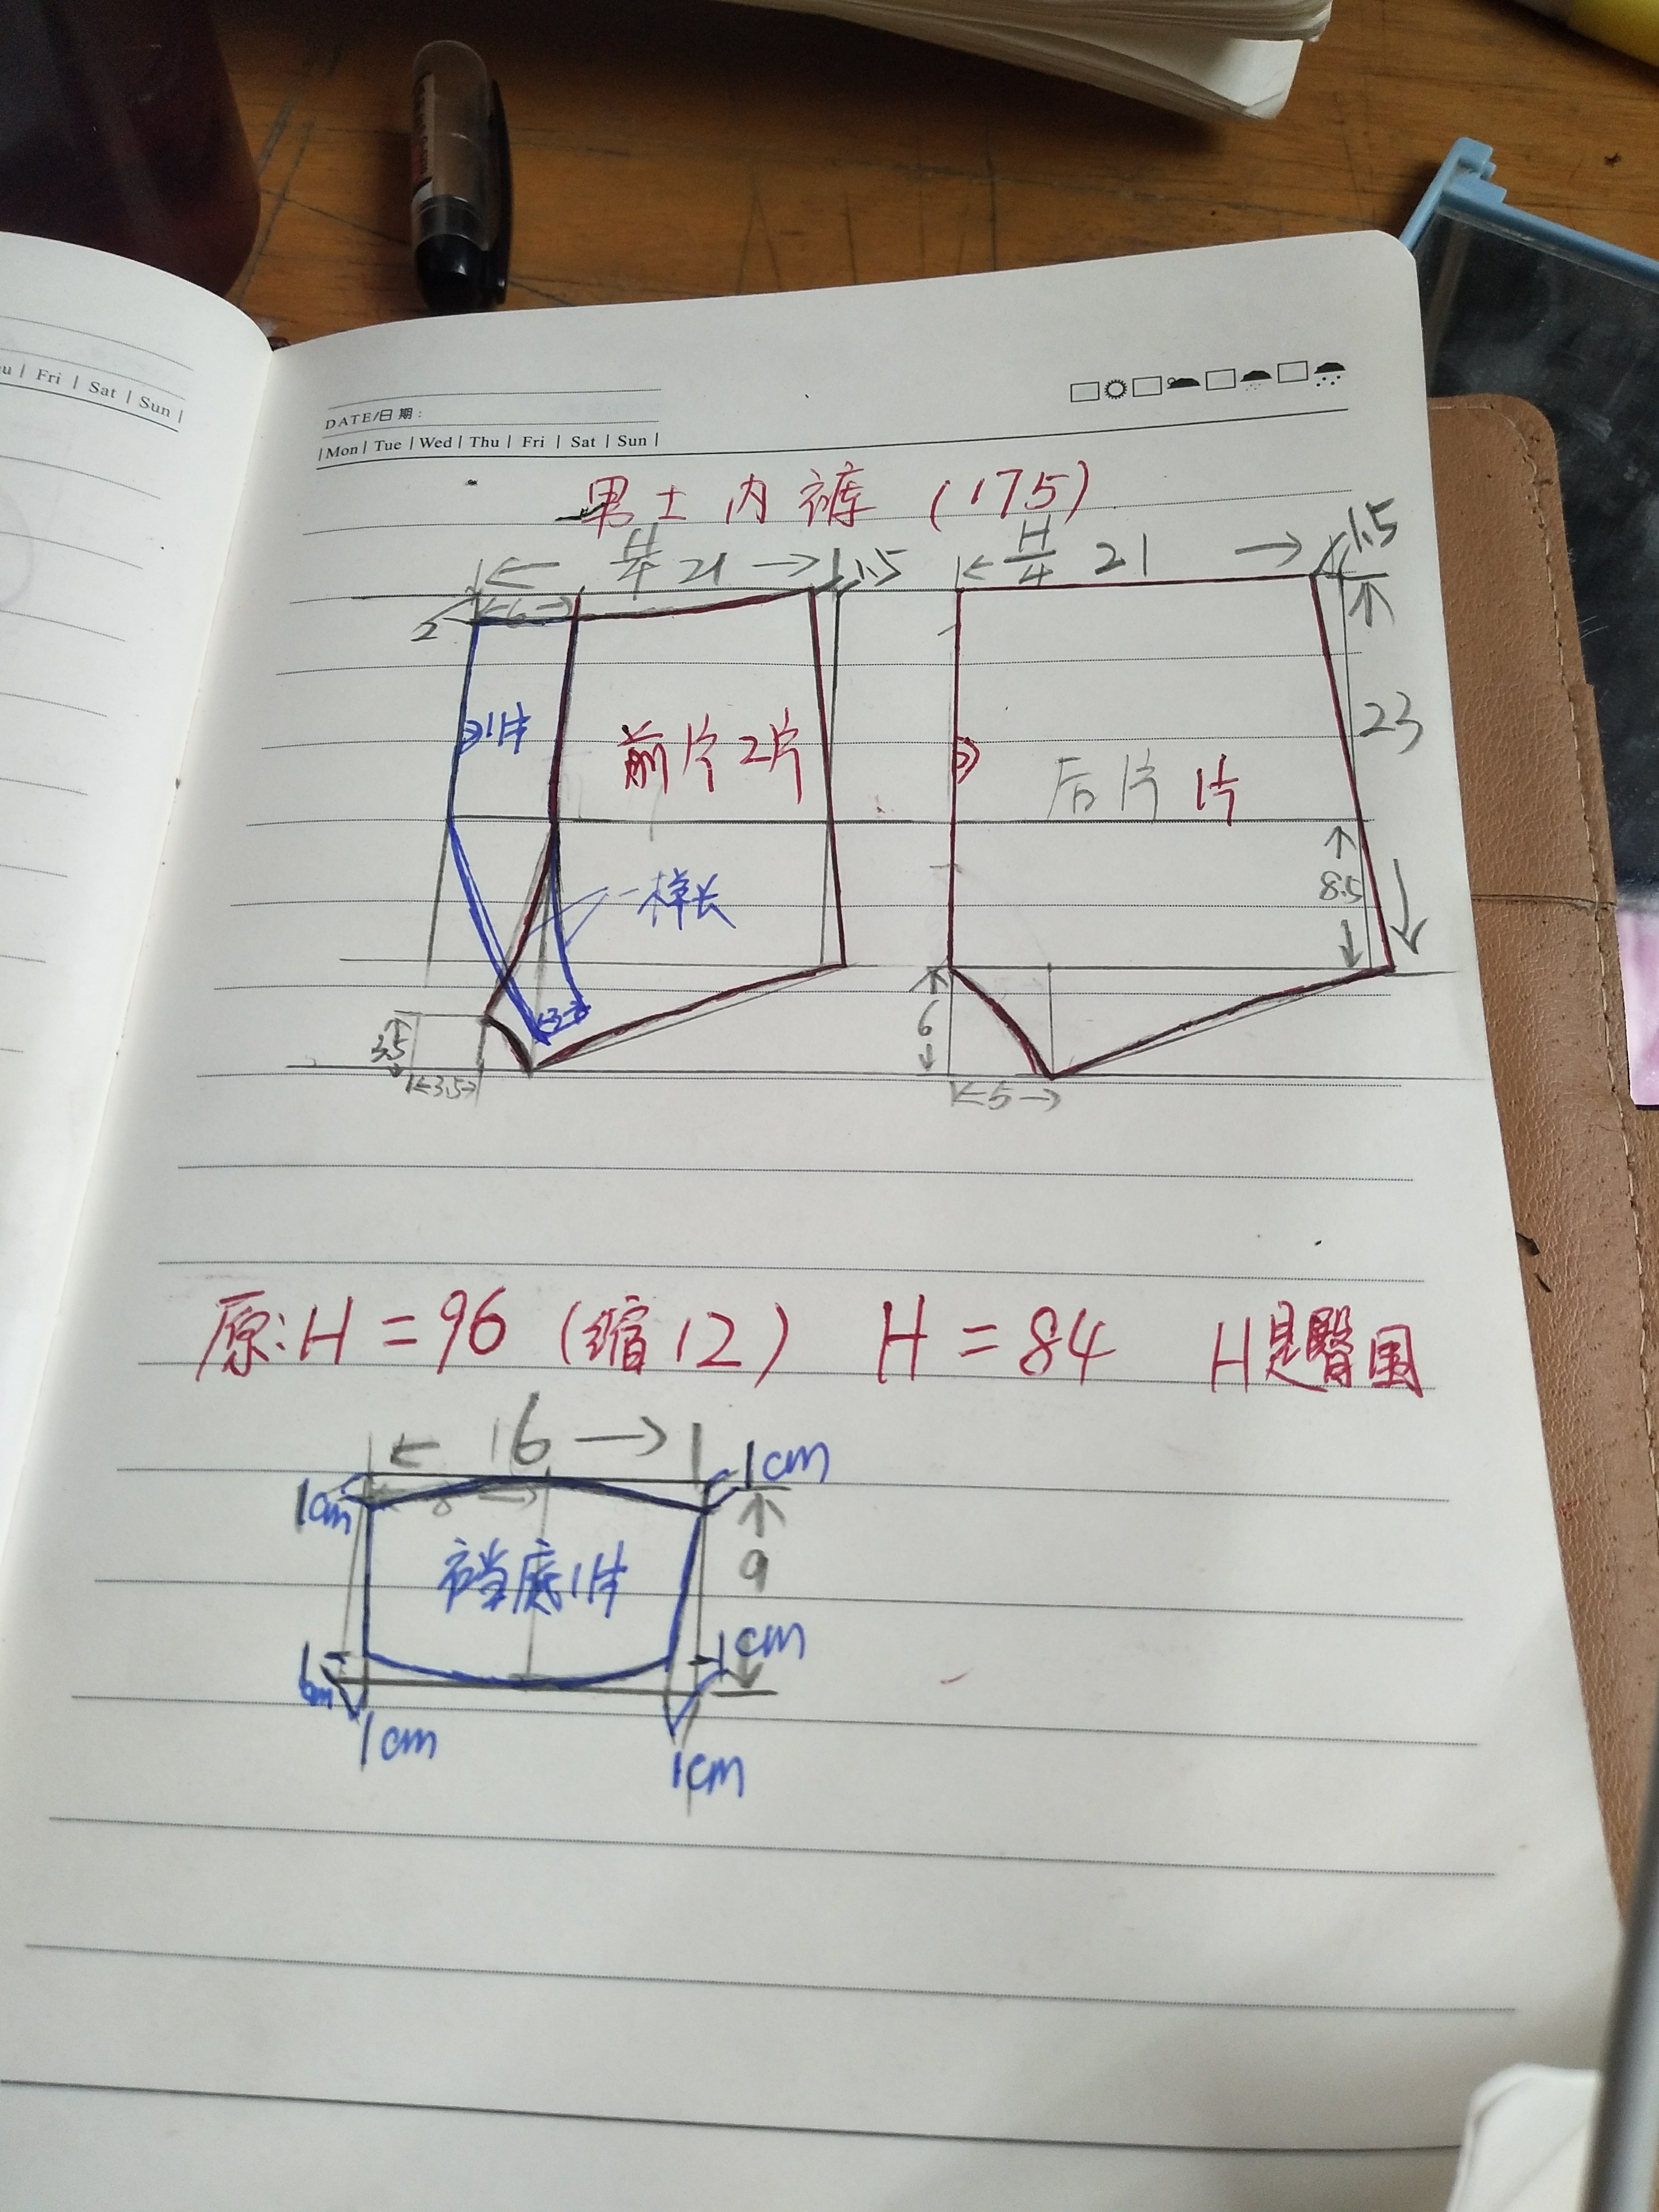 u | Fri | Sat | Sun |
DATE/日期:
| Mon | Tue | Wed | Thu | Fri | Sat | Sun |
男士内裤 (175)
H/4 21 1.5
H/4 21 1.5
2 6
1片
前片2片
后片 1片
23
一样长
8.5
3.5
3.5
3
6
5
原:H=96 (缩12) H=84 H是臀围
16
1cm
1cm
8
9
裆底1片
1cm
1cm
1cm
1cm